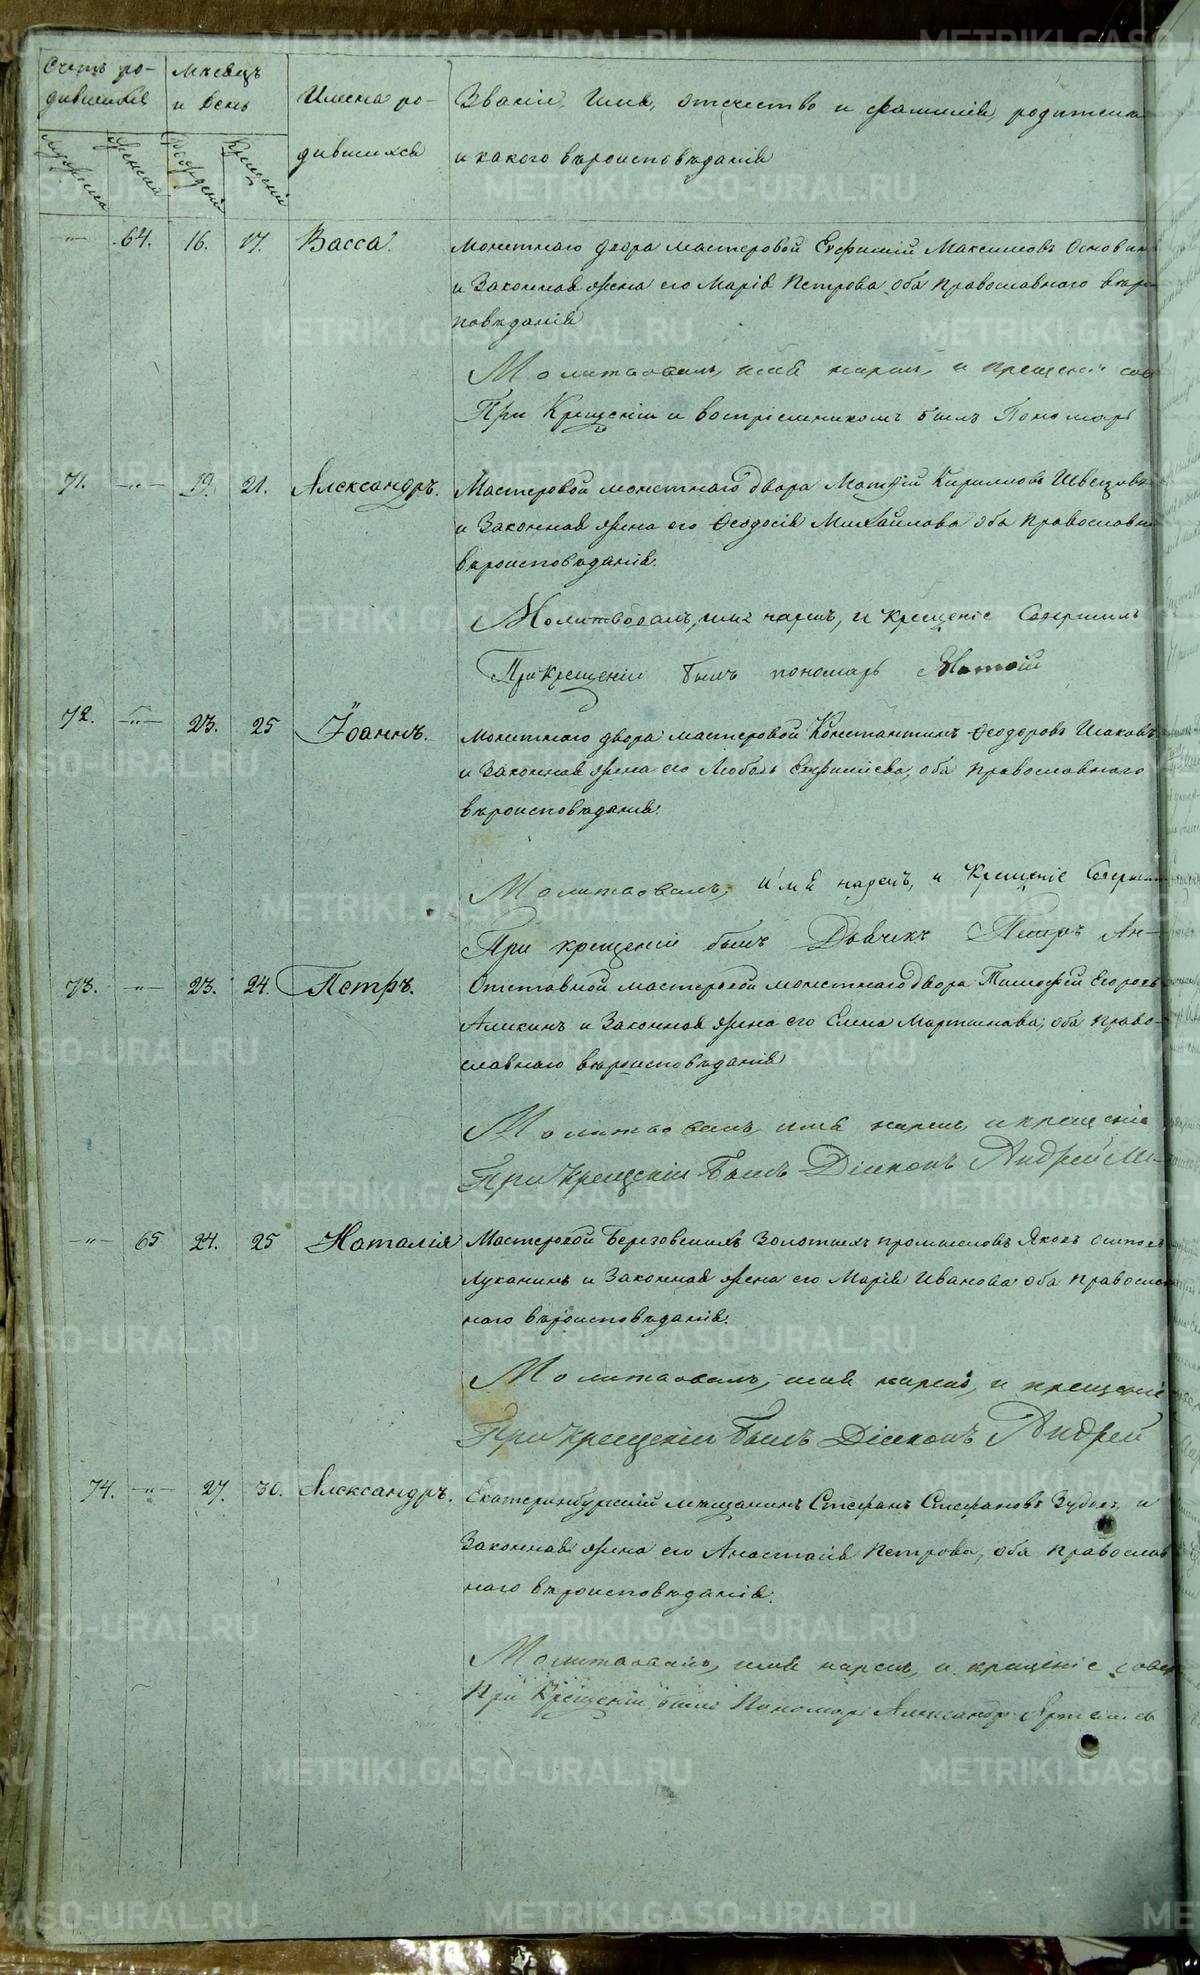 Счетъ ро-
дившихся
Мѣсяцъ
и день
Имена ро-
дившихся
Званіе, имя, отчество и фамилія, родителей
и какого вѣроисповѣданія
мужеска
женска
Рожденія
Крещенія
-"- 64. 16. 17. Васса.
Монетнаго двора мастеровой Евфимій Максимовъ
и Законная жена его Марія Петрова оба православнаго вѣрои-
повѣданія
Молитвовалъ, имя нарекъ, и крещеніе сов
При Крещеніи и воспріемникомъ былъ Пономарь
71. -"- 19. 21. Александръ.
Мастеровой монетнаго двора Матфій Кириловъ Швецовъ
и Законная жена его Ѳеодосія Михайлова оба православна
вѣроисповѣданія.
Молитвовалъ, имя нарекъ, и крещеніе Совершилъ
При Крещеніи былъ пономарь
72. -"- 23. 25 Іоаннъ.
Монетнаго двора мастеровой Константинъ Ѳеодоровъ Исаковъ
и Законная жена его Любовь Евфиміева, оба православнаго
вѣроисповѣданія.
Молитвовалъ, имя нарекъ, и Крещеніе Соверши
При крещеніи былъ Дьячекъ Петръ Ан-
73. -"- 23. 24. Петръ.
Отставной мастеровой монетнаго двора Тимофей Егоровъ
Аликинъ и Законная жена его Елена Мартинова, оба право-
славнаго вѣроисповѣданія
Молитвовалъ, имя нарекъ, и крещеніе
При Крещеніи былъ Діаконъ Андрей
-"- 65 24. 25 Наталія
Мастеровой Березовскихъ Золотыхъ промысловъ Яковъ Осипов
Луканинъ и Законная жена его Марія Иванова оба православ
наго вѣроисповѣданія.
Молитвовалъ, имя нарекъ, и крещеніе
При Крещеніи былъ Діаконъ Андрей
74. -"- 27. 30. Александръ.
Екатеринбургскій мѣщанинъ Стефанъ Стефановъ и
Законная жена его Анастасія Петрова, оба православ
наго вѣроисповѣданія.
Молитвовалъ, имя нарекъ, и крещеніе совер
При Крещеніи былъ Пономарь Александръ
METRIKI.GASO-URAL.RU